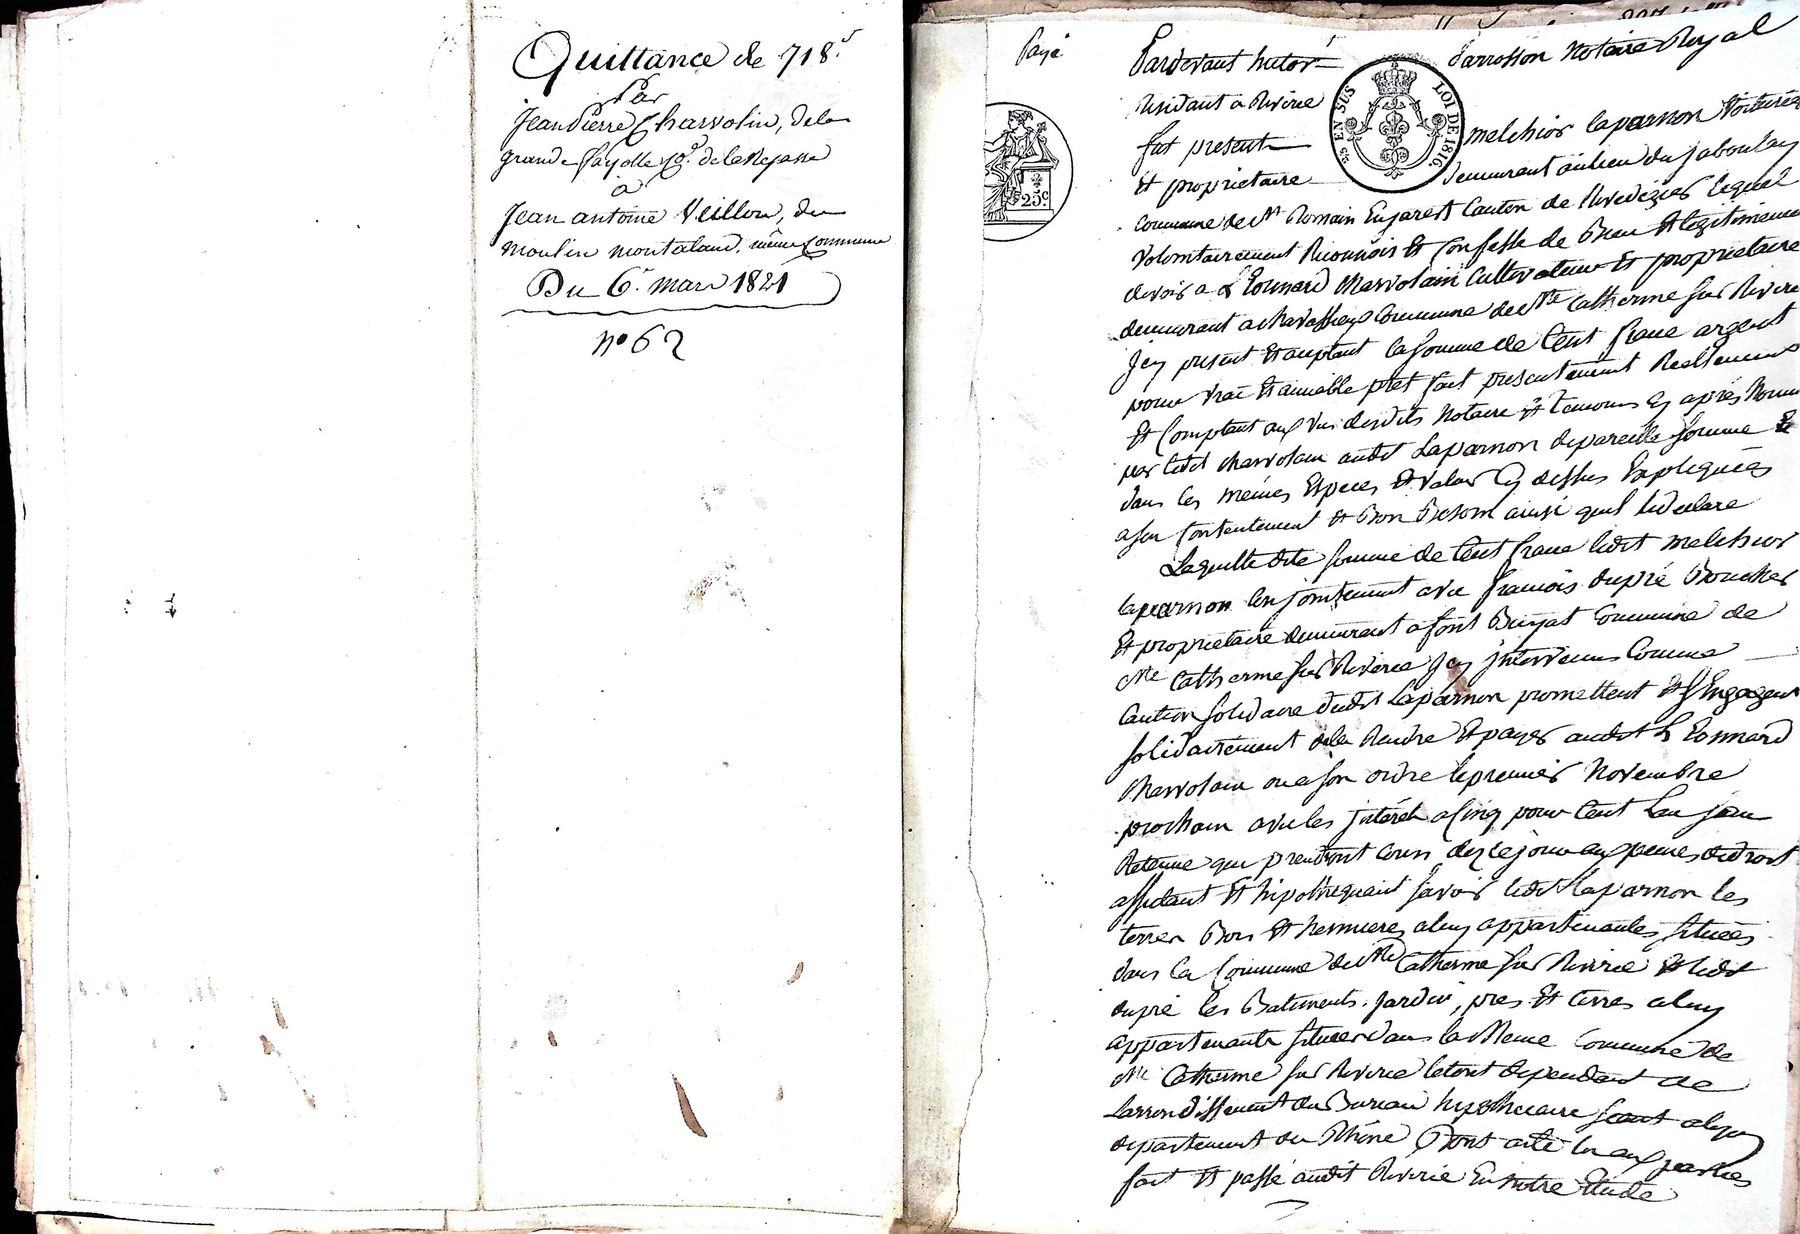 Quittance de 718f.
Par
Jean Pierre Charvolin, de la
grande fayolle
à
Jean antoine Veillon, du
moulin montaland, même Commune
Du 6. mars 1821
N° 62
Payé
Pardevant Victor Jarrosson Notaire Royal
Residant a Riverie
fut present melchior laparnon Voiturier
Et proprietaire demeurant aulieu du jaboulay
commune de St Romain En jarest Canton de Rivedegier lequel
Volontairement Reconnois Et Confesse de Bien Et legitimement
devoir a Leonnard charvolain Cultivateur Et proprietaire
demeurant a commune de Ste Catherine sur Riverie
jcy present Et aceptant la somme de Cent franc argent
pour vrai Et amiable pret fait presentement Reellement
Et Comptant aux vus desdits Notaire Et temoins Cy après Nommés
par ledit charvolain audit Laparnon de pareille somme Et
dans les mêmes Especes Et Valeur Cy dessus Expliquées
a son Contentement Et ainsi quil le declare
Laquelle dite somme de Cent franc ledit melchior
laparnon Conjointement avec francois dupré Boucher
Et proprietaire demeurant a font Commune de
Ste Catherine sur Riverie jcy jntervenus Comme
Caution solidaire dudit Laparnon promettent Et sEngagent
solidairement de la Rendre Et payer audit Leonnard
charvolain ou a son ordre le premier Novembre
prochain avec les jnterêt a Cinq pour Cent Lan sans
Retenue qui prendront cours dez ce jour aux peines de droit
affectant Et hipothequant savoir ledit laparnon les
terres Bois Et hermieres a luy appartenantes situées
dans la Commune de Ste Catherine sur Riverie Et ledit
dupré les Batiments, jardin, pres Et terres a luy
appartenants situées dans la Meme Commune de
Ste Catherine sur Riverie le tout dependant de
Larrondissement du Bureau hypothecaire seant a lyon
departement du Rhône Dont acte lu aux parties
fait Et passé audit Riverie En notre Etude
25c
EN SUS
LOI DE 1816.